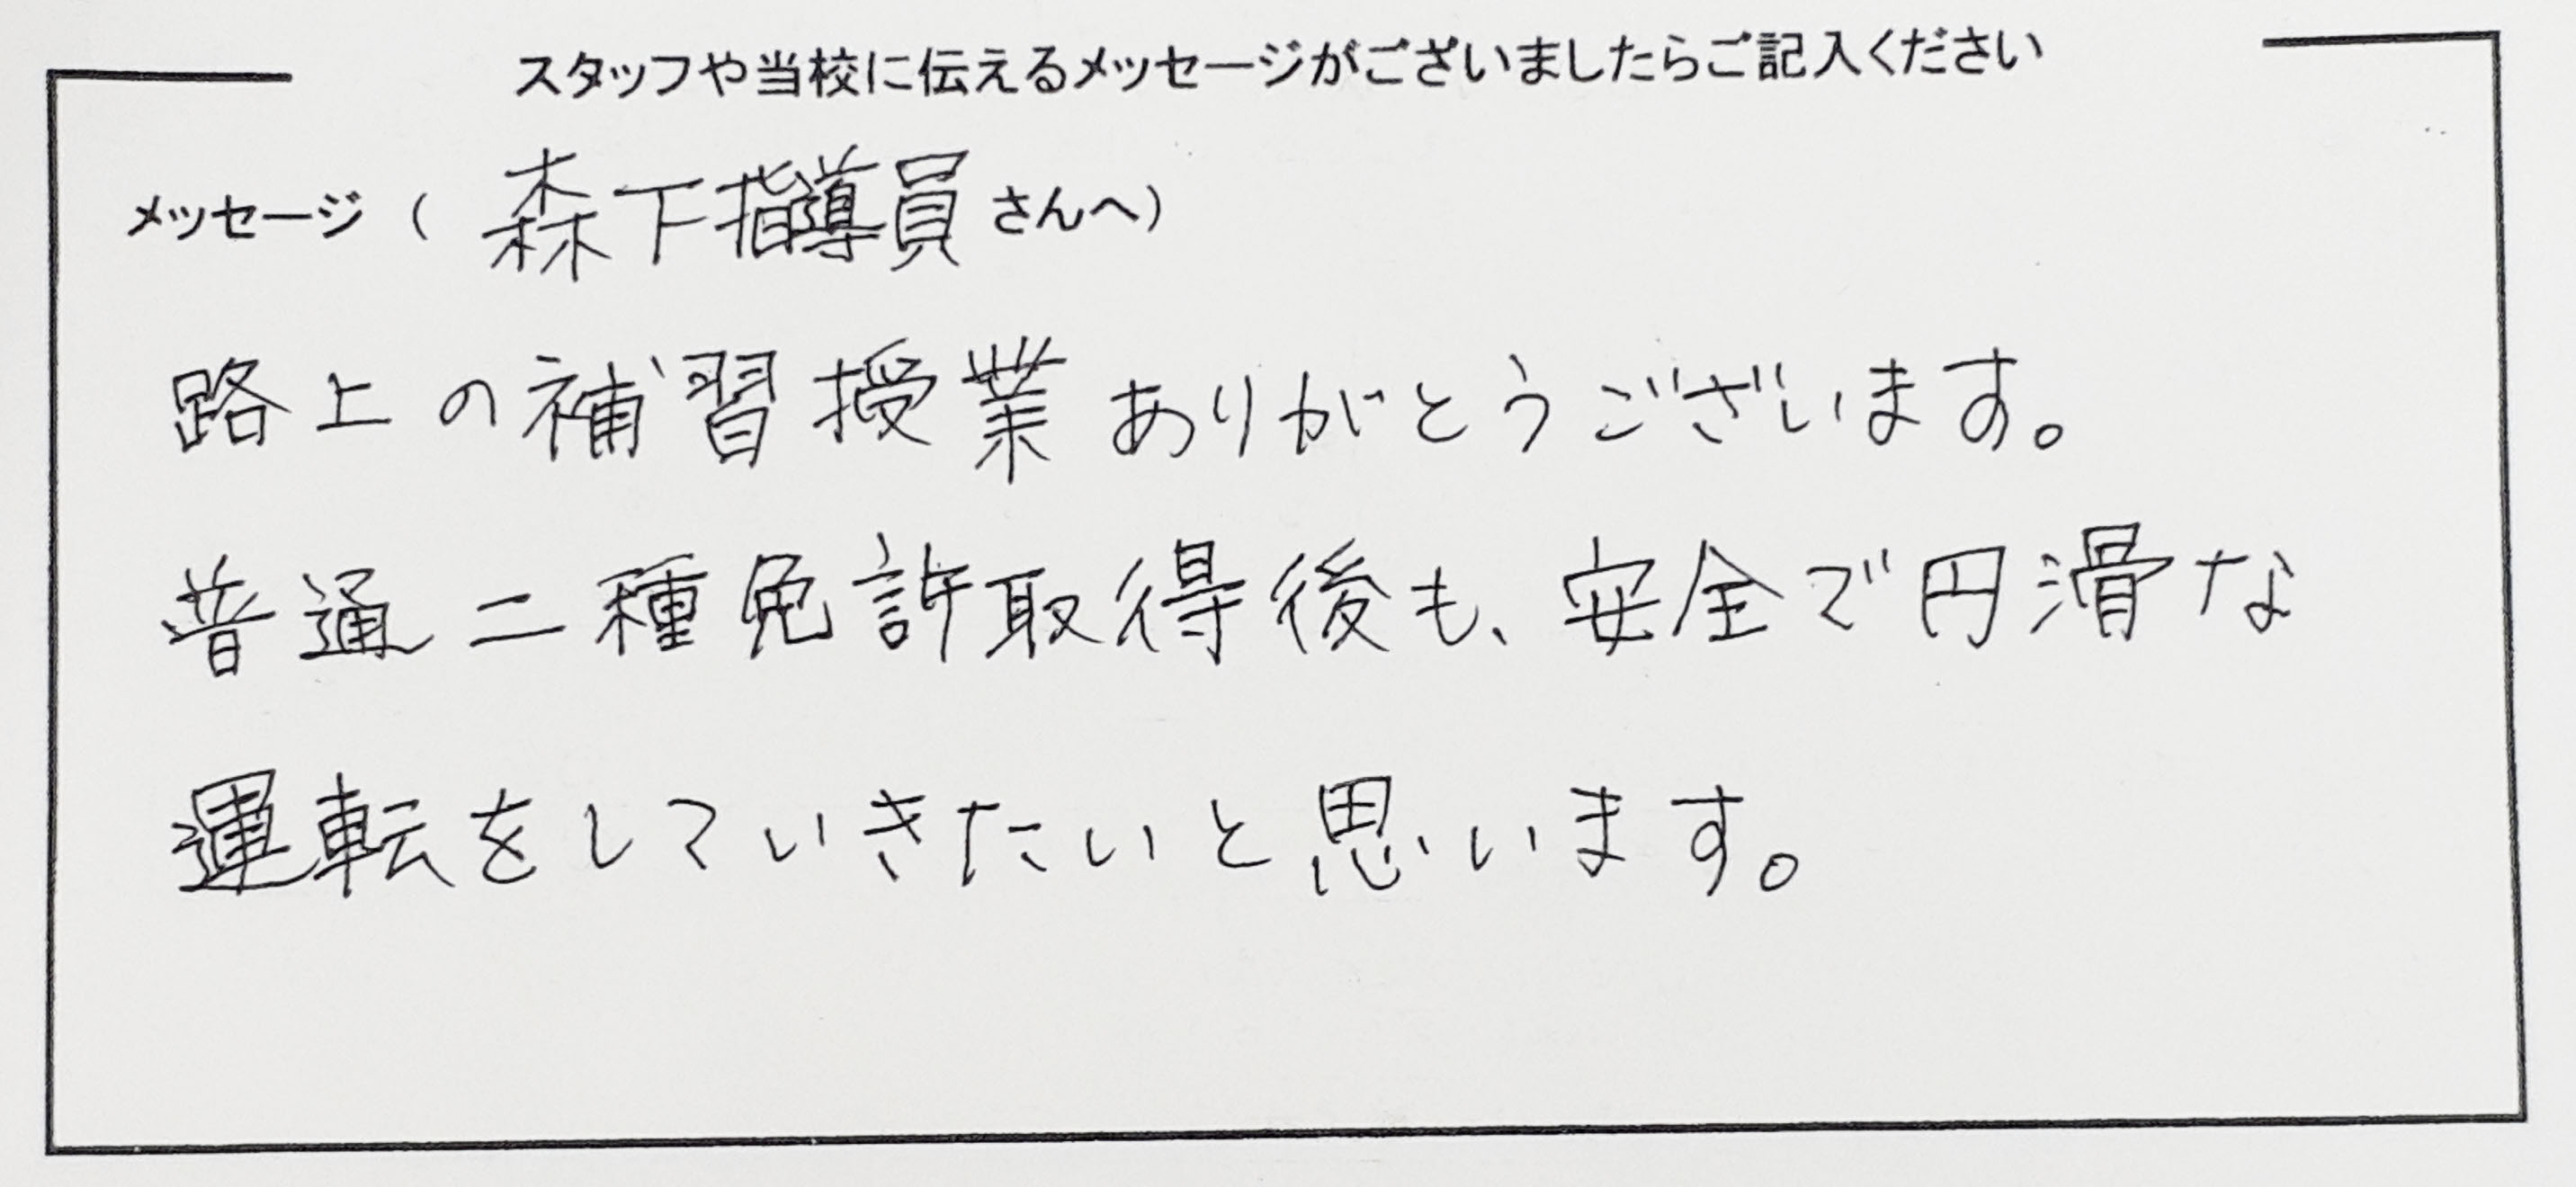 スタッフや当校に伝えるメッセージがございましたらご記入ください
メッセージ（ 森下指導員 さんへ）
路上の補習授業ありがとうございます。
普通二種免許取得後も、安全で円滑な
運転をしていきたいと思います。